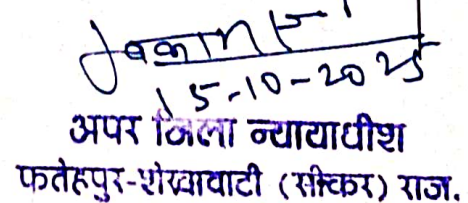 15-10-2025
अपर जिला न्यायाधीश
फतेहपुर-शेखावाटी (सीकर) राज.